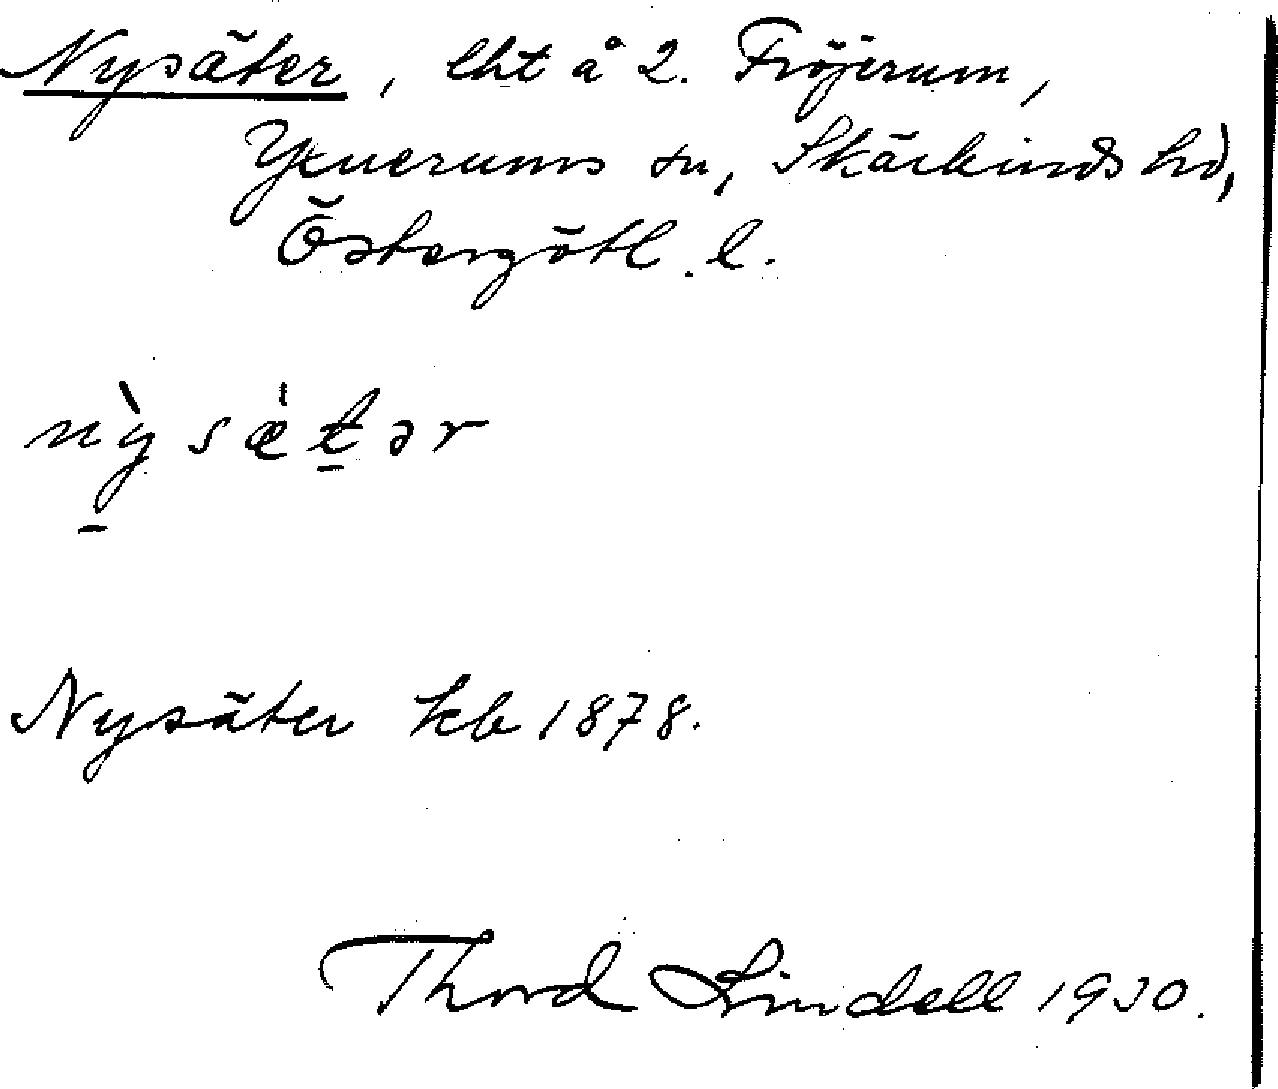 Nysäter, lht å 2. Fröjerum,
Yxnerums sn, Skärkinds hd,
Östergötl. l.
nỳsæ̀tər
Nysäter kb 1878.
Thord Lindell 1930.